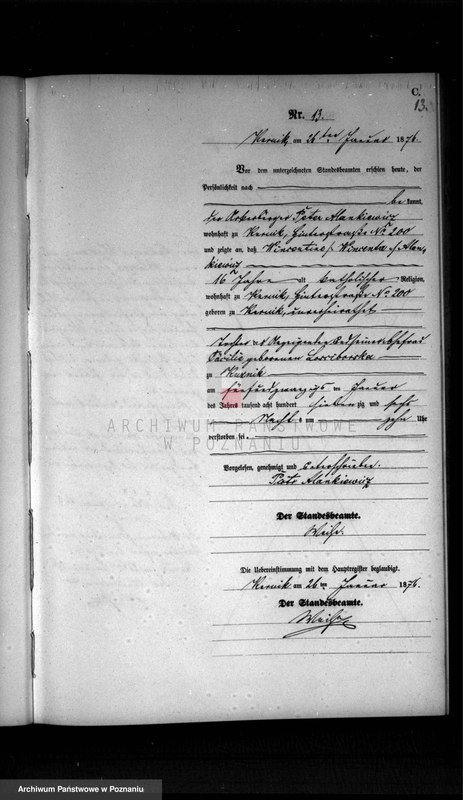 C.
13.
Nr. 13.
Kurnik, am 26 ten Januar 1876.
Vor dem unterzeichneten Standesbeamten erschien heute, der
Persönlichkeit nach
bekannt,
der Ackerbürger Peter Alankiewicz
wohnhaft zu Kurnik, Hinterstraße No 200
und zeigte an, daß Wincentine / Wincenta / Alan-
kiewicz
16 Jahre alt katholischer Religion,
wohnhaft zu Kurnik, Hinterstraße No 200
geboren zu Kurnik, unverheirathet
Tochter des Anzeigenden und seiner Ehefrau
Cäcilie geborenen
zu Kurnik
am fünfundzwanzigsten Januar
des Jahres tausend acht hundert siebenzig und sechs
Nachts um zehn Uhr
verstorben sei.
Vorgelesen, genehmigt und unterschrieben.
Piotr Alankiewicz
Der Standesbeamte.
Die Uebereinstimmung mit dem Hauptregister beglaubigt.
Kurnik am 26 ten Januar 1876.
Der Standesbeamte.
ARCHIWUM PAŃSTWOWE
W POZNANIU
Archiwum Państwowe w Poznaniu